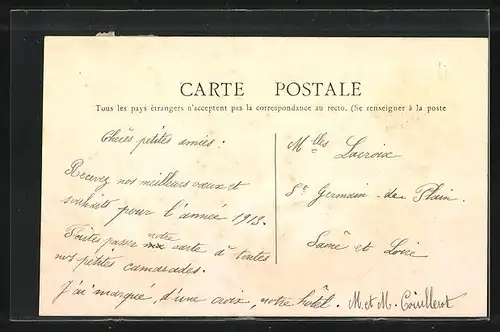 CARTE POSTALE
Tous les pays étrangers n'acceptent pas la correspondance au recto. (Se renseigner à la poste
Chères petites amies :
Recevez nos meilleurs vœux et
souhaits pour l'année 1913.
Faites passer notre carte à toutes
nos petites camarades.
J'ai marqué d'une croix, notre hôtel. M. et M.
Mlles Lacroix
St Germain-du-Plain.
Saône et Loire